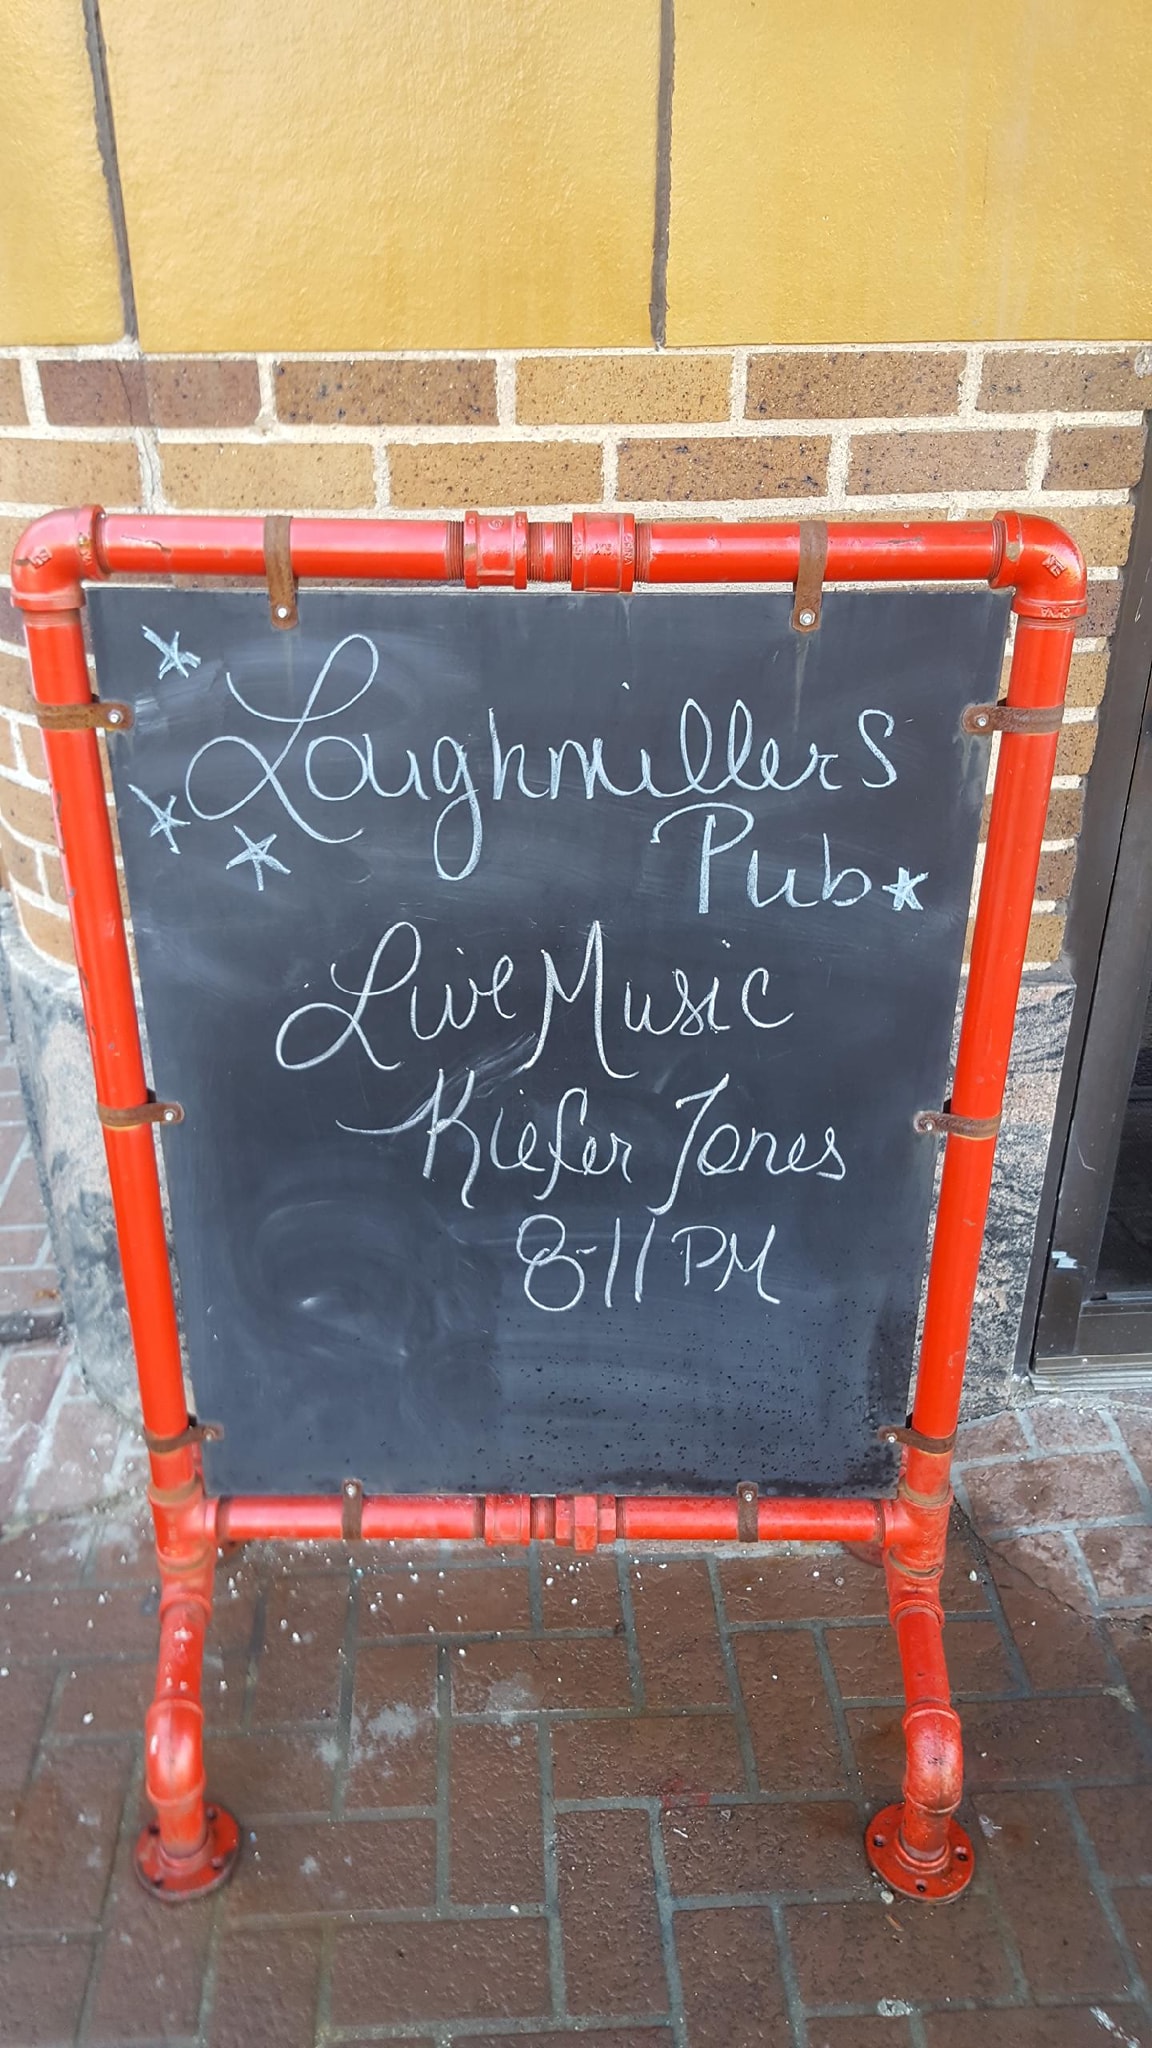 Loughmillers
Pub
Live Music
Kiefer Jones
8-11 PM